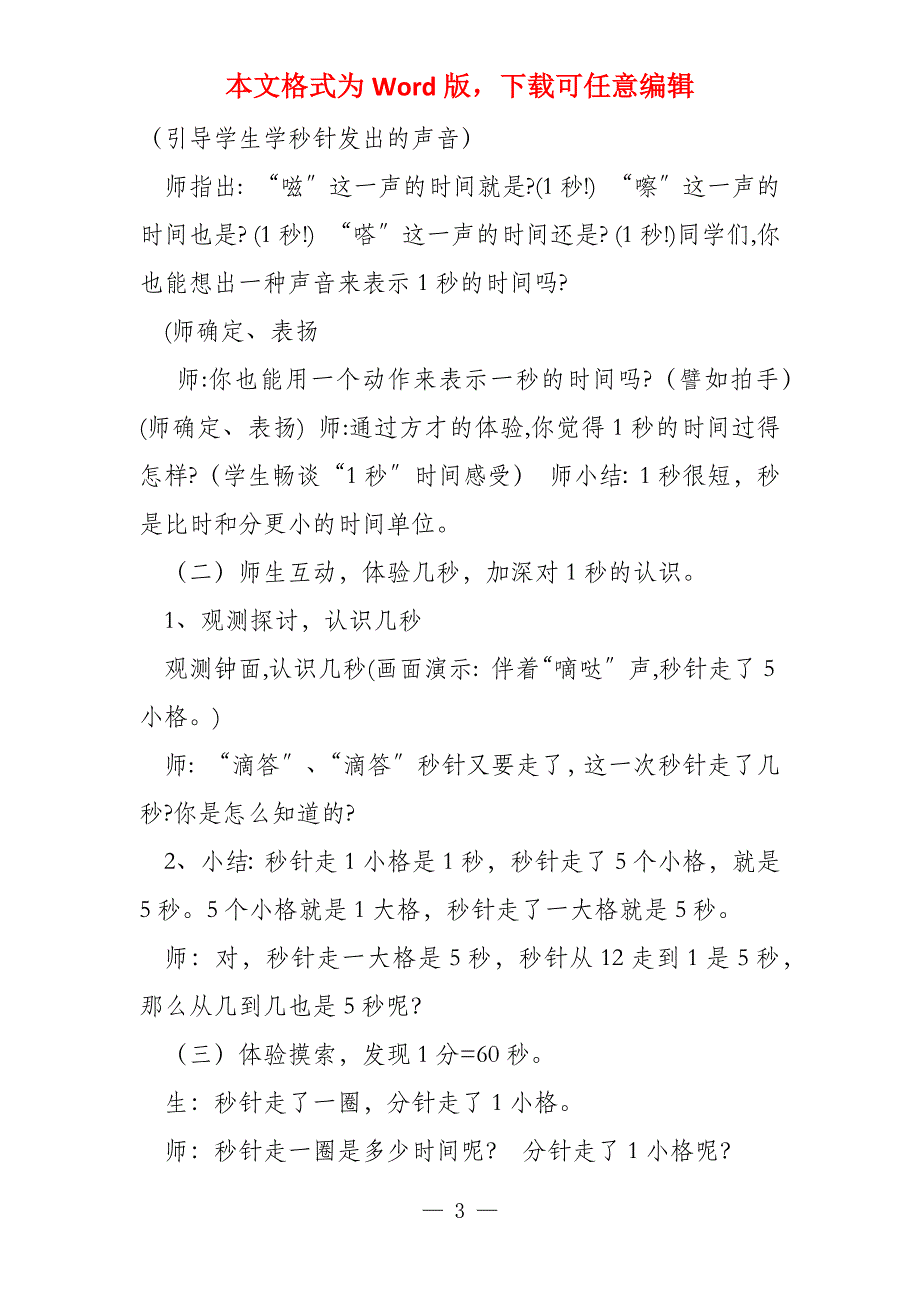 本文格式为 Word 版，下载可任意编辑
（引导学生学秒针发出的声音）
师指出: “嗞″这一声的时间就是?(1 秒!) “嚓″这一声的
时间也是? (1 秒!) “嗒″这一声的时间还是? (1 秒!)同学们,你
也能想出一种声音来表示 1 秒的时间吗?
(师确定、表扬
师:你也能用一个动作来表示一秒的时间吗?（譬如拍手)
(师确定、表扬) 师:通过方才的体验,你觉得 1 秒的时间过得
怎样?（学生畅谈“1 秒″时间感受） 师小结: 1 秒很短，秒
是比时和分更小的时间单位。
（二）师生互动，体验几秒，加深对 1 秒的认识。
1、观测探讨，认识几秒
观测钟面,认识几秒(画面演示: 伴着“嘀哒″声,秒针走了 5
小格。)
师: “滴答″、“滴答″秒针又要走了, 这一次秒针走了几
秒?你是怎么知道的?
2、小结: 秒针走 1 小格是 1 秒，秒针走了 5 个小格，就是
5 秒。5 个小格就是 1 大格，秒针走了一大格就是 5 秒。
师：对，秒针走一大格是 5 秒，秒针从 12 走到 1 是 5 秒，
那么从几到几也是 5 秒呢？
（三）体验摸索，发现 1 分=60 秒。
生：秒针走了一圈，分针走了 1 小格。
师：秒针走一圈是多少时间呢？ 分针走了 1 小格呢？
— 3 —